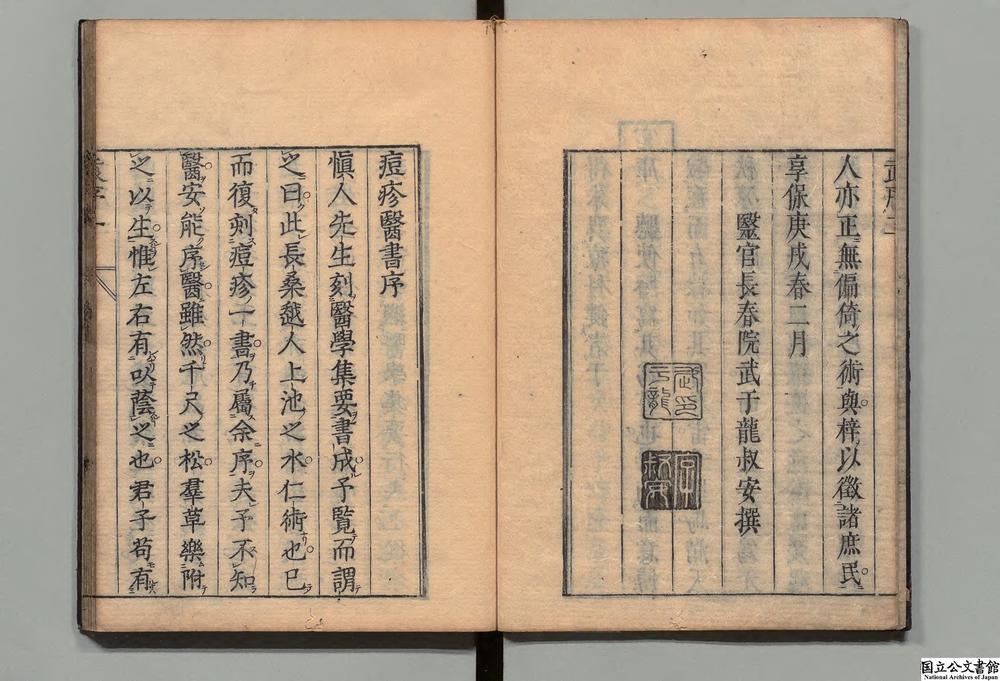 人亦正無偏倚之術與梓以徵諸庶民
享保庚戌春二月
醫官長春院武于龍叔安撰
痘疹醫書序
愼人先生刻醫學集要書成予覽而謂
之曰此長桑越人上池之水仁術也已
而復刻痘疹一書乃屬余序夫予不知
醫安能序醫雖然千尺之松羣草樂附
之以生惟左右有以蔭之也君子苟有
国立公文書館
National Archives of Japan